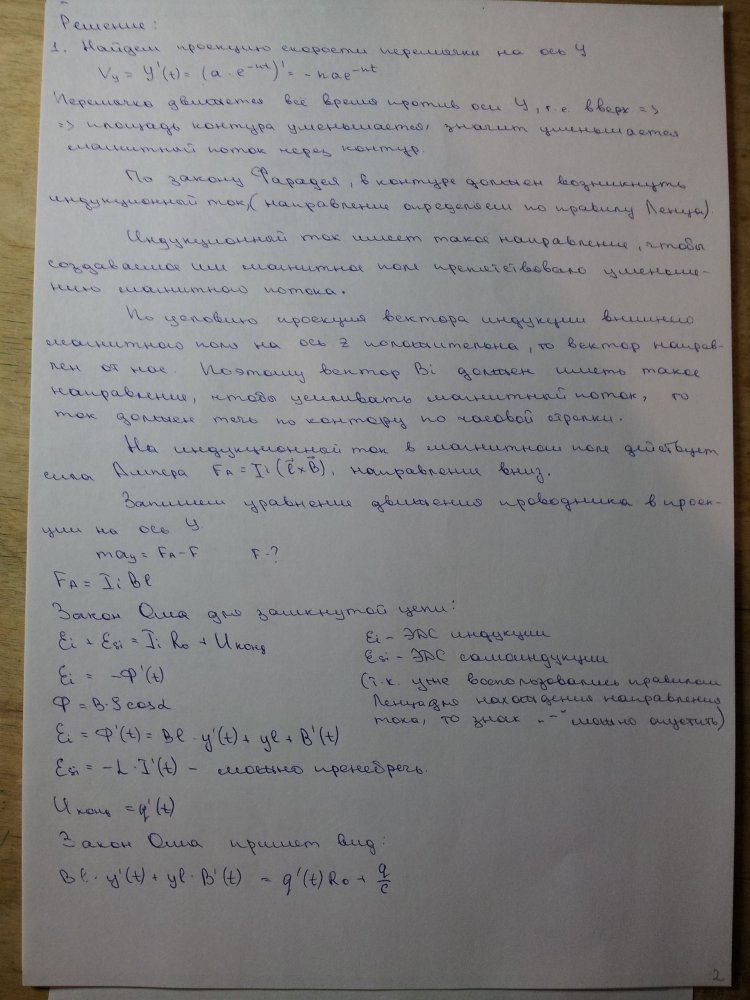 Решение:
1. Найдем проекцию скорости перемычки на ось y
Vy = y'(t) = (a · e^-nt)' = -nae^-nt
Перемычка движется всё время против оси y, т.е. вверх =>
=> площадь контура уменьшается, значит уменьшается
магнитный поток через контур.
По закону Фарадея, в контуре должен возникнуть
индукционной ток, (направление определяем по правилу Ленца).
Индукционной ток имеет такое направление, чтобы
создаваемое им магнитное поле препятствовало уменьше-
нию магнитного потока.
По условию проекция вектора индукции внешнего
магнитного поля на ось z положительна, то вектор направ-
лен от нас. Поэтому вектор Bi должен иметь такое
направление, чтобы усиливать магнитный поток, то
ток должен течь по контору по часовой стрелки.
На индукционной ток в магнитном поле действует
сила Ампера FA = Ii (l⃗ x B⃗), направление вниз.
Запишем уравнение движения проводника в проек-
ции на ось y
may = FA - F F - ?
FA = Ii Bl
Закон Ома для замкнутой цепи:
Ei + Esi = Ii R0 + Uконд Ei - ЭДС индукции
Esi - ЭДС самоиндукции
Ei = -Ф'(t) (т.к. уже воспользовались правилом
Ф = B · S cosα Ленца для нахождения направления
тока, то знак „-" можно опустить)
Ei = Ф'(t) = Bl · y'(t) + yl + B'(t)
Esi = -L · I'(t) - можно пренебречь.
Uконд = q'(t)
Закон Ома примет вид:
Bl · y'(t) + yl · B'(t) = q'(t) R0 + q/c
2